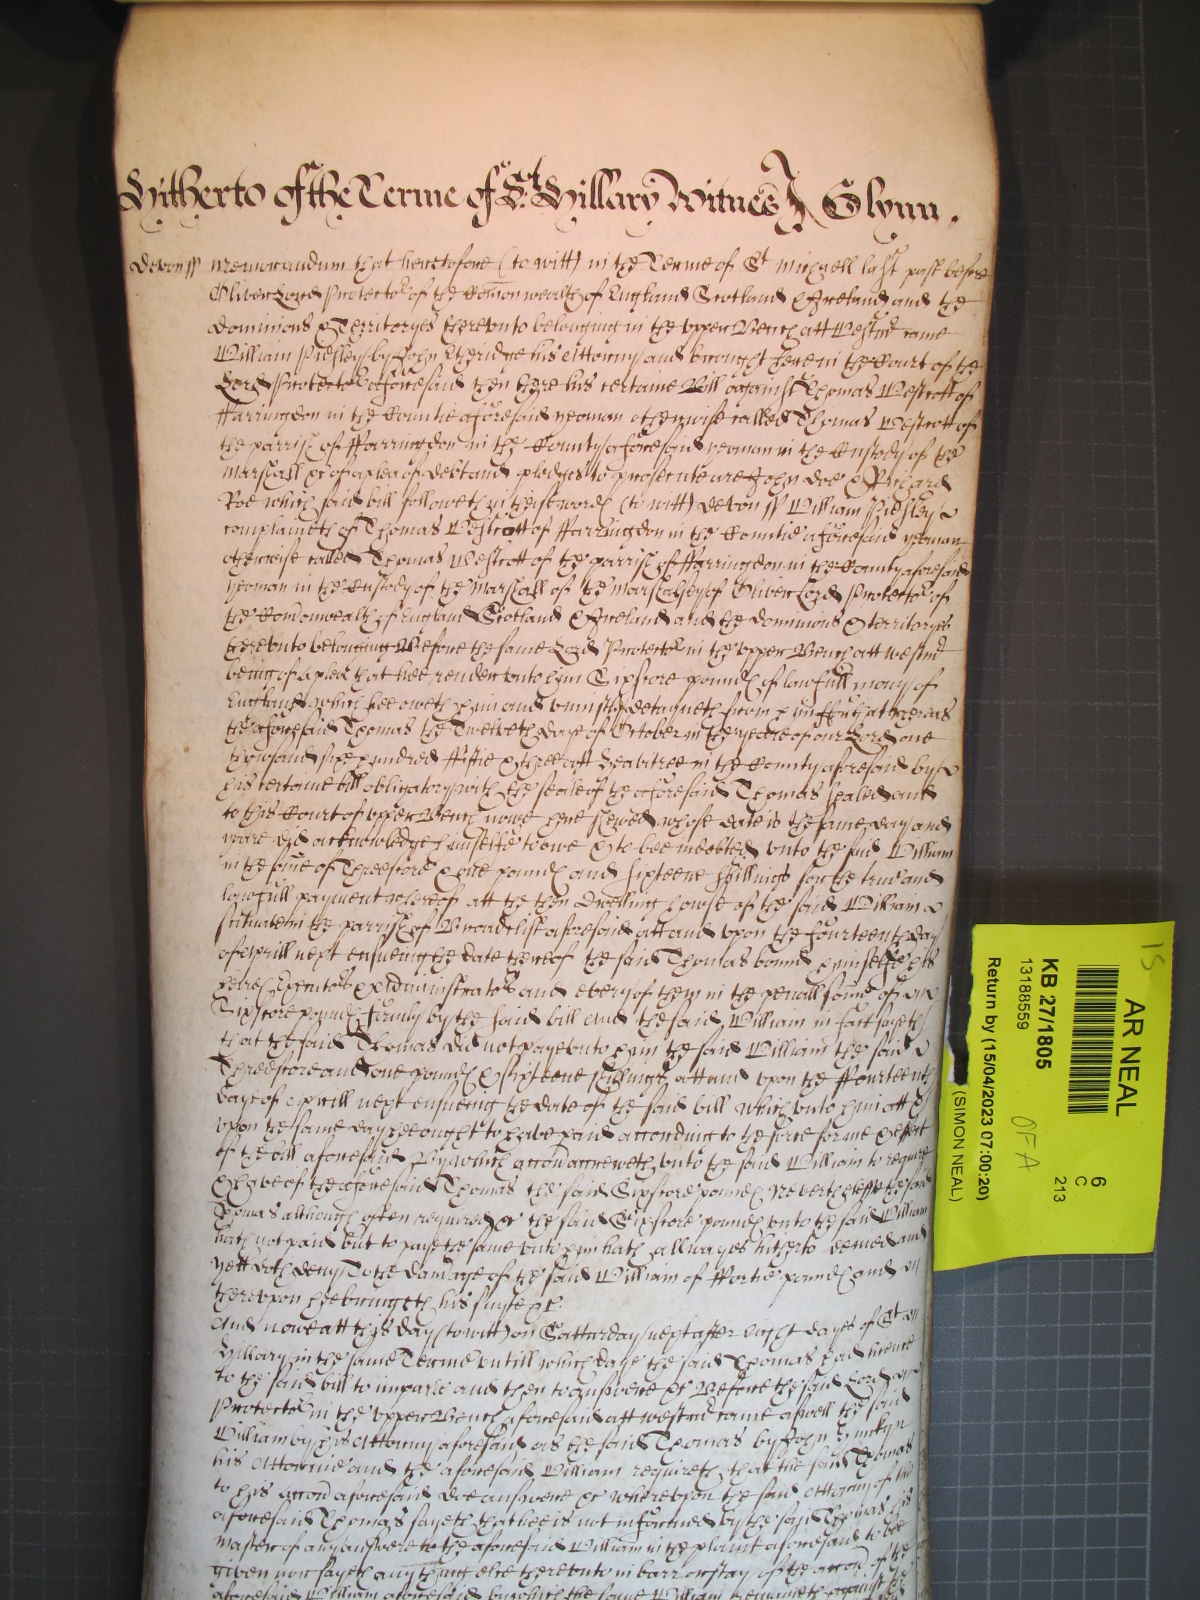 Hitherto of the Terme of St Hillary Witnes Glynn.
Devon ss Memorandum that heretofore (to witt) in the Terme of St Michaell last past before
Oliver Lord Protector of the Comonwealth of England Scotland & Ireland and the
Dominions & Territoryes thereunto belonging in the upper Bench att Westmr came
William Pidsley by John Etheridge his Attorny and brought here in the Court of the
Lord Protector aforesaid then there his certaine Bill against Thomas Westcott of
ffarringdon in the Countie aforesaid yeoman otherwise called Thomas Westcott of
the parrish of ffarringdon in the County aforesaid yeoman in the Custody of the
Marshall &c of a plea of debt and pledges to prosecute are John Doe & Richard
Roe which said bill followeth in these words (to witt) Devon ss William Pidsley
complaineth of Thomas Westcott of ffarringdon in the Countie aforesaid yeoman
otherwise called Thomas Westcott of the parrish of ffarringdon in the County aforesaid
yeoman in the Custody of the Marshall of the Marshalsey of Oliver Lord Protector of
the Comonwealth of England Scotland & Ireland and the dominions & territoryes
thereunto belonging Before the same Lord Protector in the upper Bench att westmr
being of a plea that hee render unto him Sixscore pounds of lawfull mony of
England which hee oweth him and uniustly detayneth from him ffor that whereas
the aforesaid Thomas the Twelveth day of October in the yeare of our Lord one
thowsand sixe hundred ffiftie & three att Heavitree in the County aforesaid by
his certaine bill obligatory with the seale of the aforesaid Thomas sealed and
to this Court of upper Bench nowe here shewed whose date is the same day and
yeare did acknowledge himselfe to owe & to bee indebted unto the said William
in the some of Threescore & one pounds and sixteene shillings for the true and
lawfull payment whereof att the then dwelling howse of the said William
scituate in the parrish of Broadclist aforesaid att and upon the fourteenth day
of Aprill next ensueing the date thereof the said Thomas bound himselfe his
heires Executors & Administrators and every of them in the penall some of
Sixscore pounds firmly by the said bill And the said William in fact sayeth
that the said Thomas did not paye unto him the said William the said
Threescore and one pounds & sixteene shillings att and upon the ffourteenth
day of Aprill next ensueing the date of the said bill which unto him att &
upon the same day hee ought to have paid according to the force forme & effect
of the bill aforesaid By which accon accreweth unto the said William to require
& have of the aforesaid Thomas the said Sixscore pounds Neverthelesse the said
Thomas although often required &c the said Sixscore pounds unto the said William
hath not paid but to paye the same unto him hath allwayes hitherto denied and
yett doth deny To the damage of the said William of ffortie pounds and
thereupon hee bringeth his suyte &c
And nowe att this day (to witt) on Satturday next after Eight dayes of St
Hillary in the same Terme untill which daye the said Thomas had licence
to the said bill to imparle and then to answere &c Before the said Lord
Protector in the upper Bench aforesaid att westmr came aswell the said
William by his Attorny aforesaid as the said Thomas by John
his Attornie and the aforesaid William requireth that the said Thomas
to his accon aforesaid doe answere &c whereupon the said Attorny of the
aforesaid Thomas sayeth that hee is not informed by the said Thomas his
master of any answere to the aforesaid William in the plaint aforesaid to bee
given nor sayeth any thing else thereunto in barr or stay of the accon of the
aforesaid William aforesaid by which the same William remaineth against the
AR NEAL
6
C
213
KB 27/1805
13188559
Return by (15/04/2023 07:00:20)
(SIMON NEAL)
OFA
15